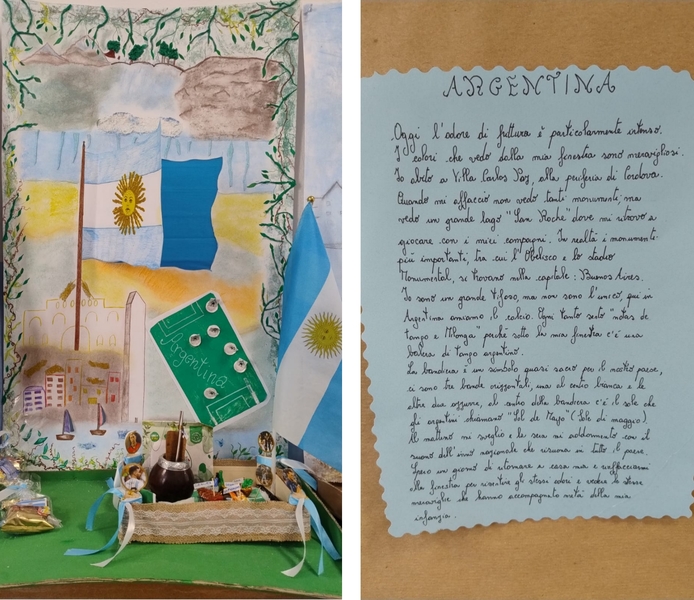 Argentina
ARGENTINA
Oggi l'odore di frittura è particolarmente intenso.
I colori che vedo dalla mia finestra sono meravigliosi.
Io abito a Villa Carlos Paz, alla periferia di Cordova.
Quando mi affaccio non vedo tanti monumenti, ma
vedo un grande lago "San Roche" dove mi ritrovo a
giocare con i miei compagni. In realtà i monumenti
più importanti, tra cui l'Obelisco e lo stadio
Monumental, si trovano nella capitale: Buenos Aires.
Io sono un grande tifoso, ma non sono l'unico, qui in
Argentina amiamo il calcio. Ogni tanto sento "notas de
tango e Milonga" perché sotto la mia finestra c'è una
balera di tango argentino.
La bandiera è un simbolo quasi sacro per il nostro paese,
ci sono tre bande orizzontali, una al centro bianca e le
altre due azzurre, al centro della bandiera c'è il sole che
gli argentini chiamano "Sol de Mayo" (Sole di maggio).
Al mattino mi sveglio e la sera mi addormento con il
suono dell'inno nazionale che risuona in tutto il paese.
Spero un giorno di ritornare a casa mia e riaffacciarmi
alla finestra per risentire gli stessi odori e vedere le stesse
meraviglie che hanno accompagnato metà della mia
infanzia.